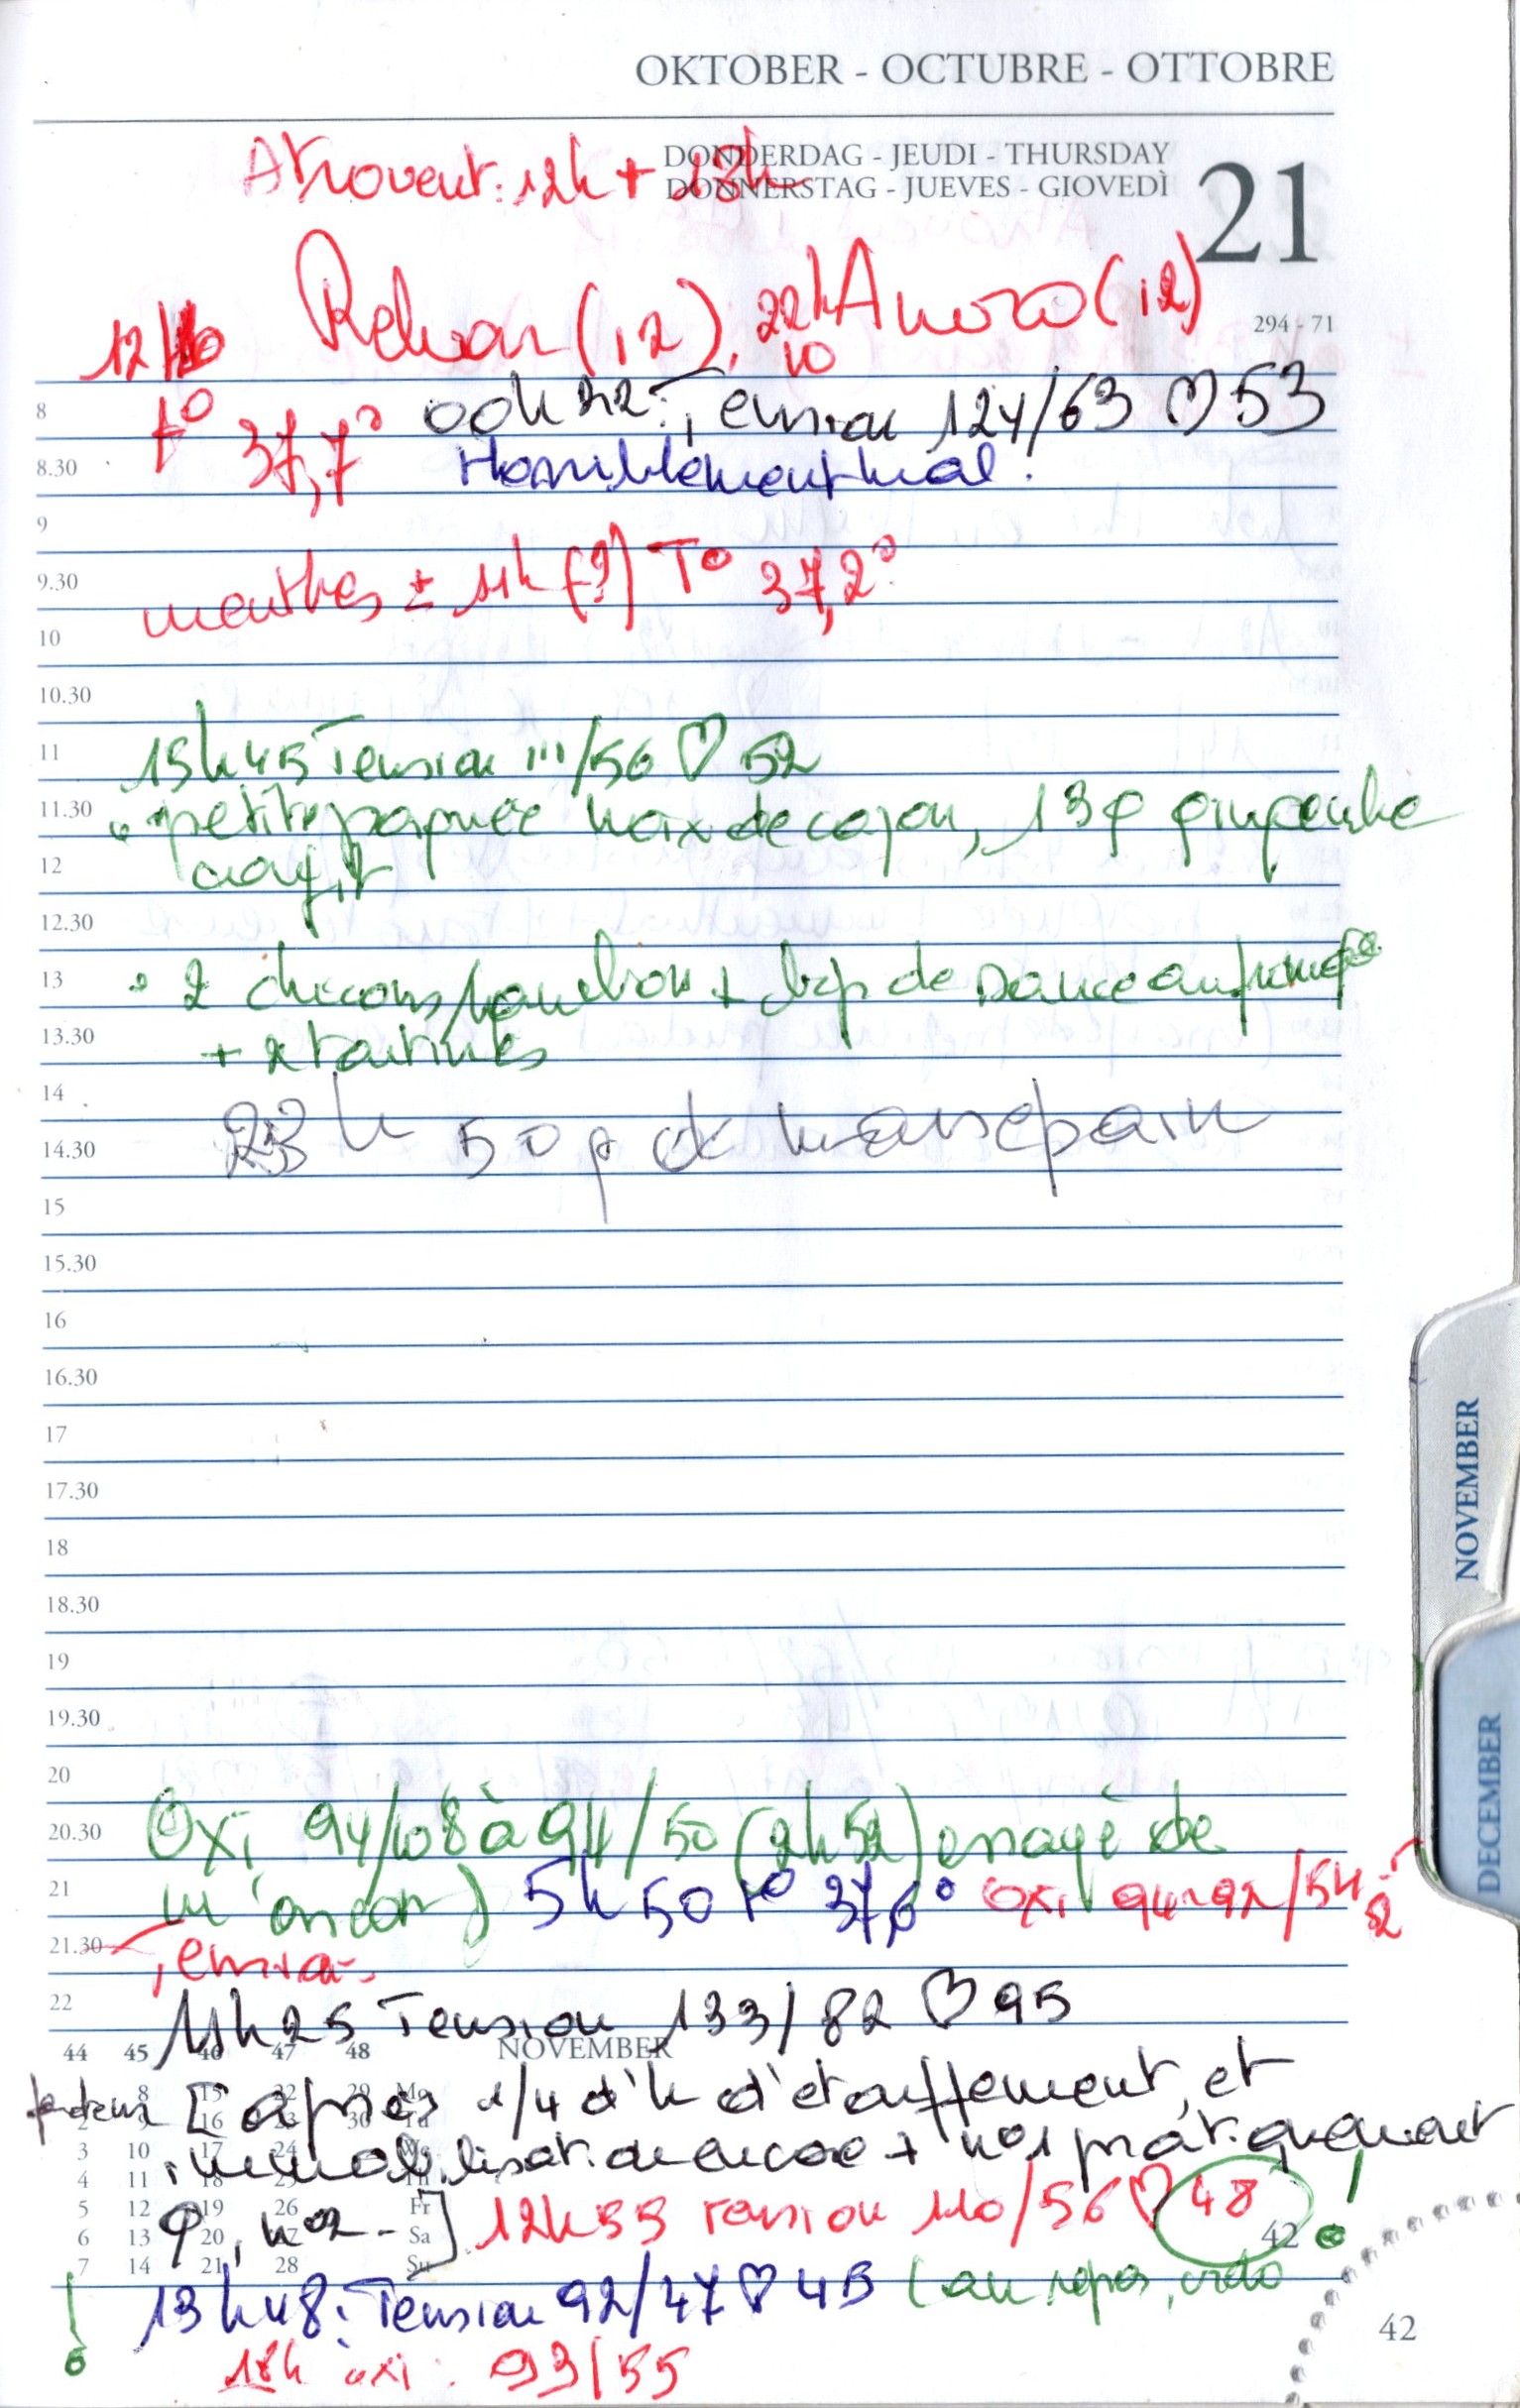 OKTOBER - OCTUBRE - OTTOBRE
DONDERDAG - JEUDI - THURSDAY
DONNERSTAG - JUEVES - GIOVEDÌ
21
Atrovent: 12h + 18h
Relvar (12), 22h Anoro (12)
10
294 - 71
8
t° 37,7° 00h 32: Tension 124/63 ♡ 53
8.30
Horriblement mal!
9
9.30
menthes ± 11h (?) T° 37,2°
10
10.30
11
15h45 Tension 111/56 ♡ 52
11.30
petite poignée noix de cajou, 13 g gingembre
12
confit
12.30
13
2 chicons jambon + de sauce au fromage
13.30
+ 2 tartines
14
14.30
23 h 50 g de massepain
15
15.30
16
16.30
17
17.30
18
18.30
19
19.30
20
20.30
Oxi 94/108 à 94/50 (2h52) essayé de
21
m'endor) 5h50 t° 37,6° oxi 94-92/54
21.30
Tension
22
11h25 Tension 133/82 ♡ 95
44 45 46 47 48 NOVEMBER
1 8 15 22 29 Mo
[après 1/4 d'h d'étouffement, et
2 9 16 23 30 Tu
3 10 17 24 We
immobilisation encore + n°1 pratiquement
4 11 18 25 Th
5 12 19 26 Fr
, n°2 -] 12h55 Tension 110/56 ♡ 48 !
6 13 20 27 Sa
42
7 14 21 28 Su
! 13h48: Tension 92/47 ♡ 45 (au repos,
42
18h oxi: 93/55
NOVEMBER
DECEMBER